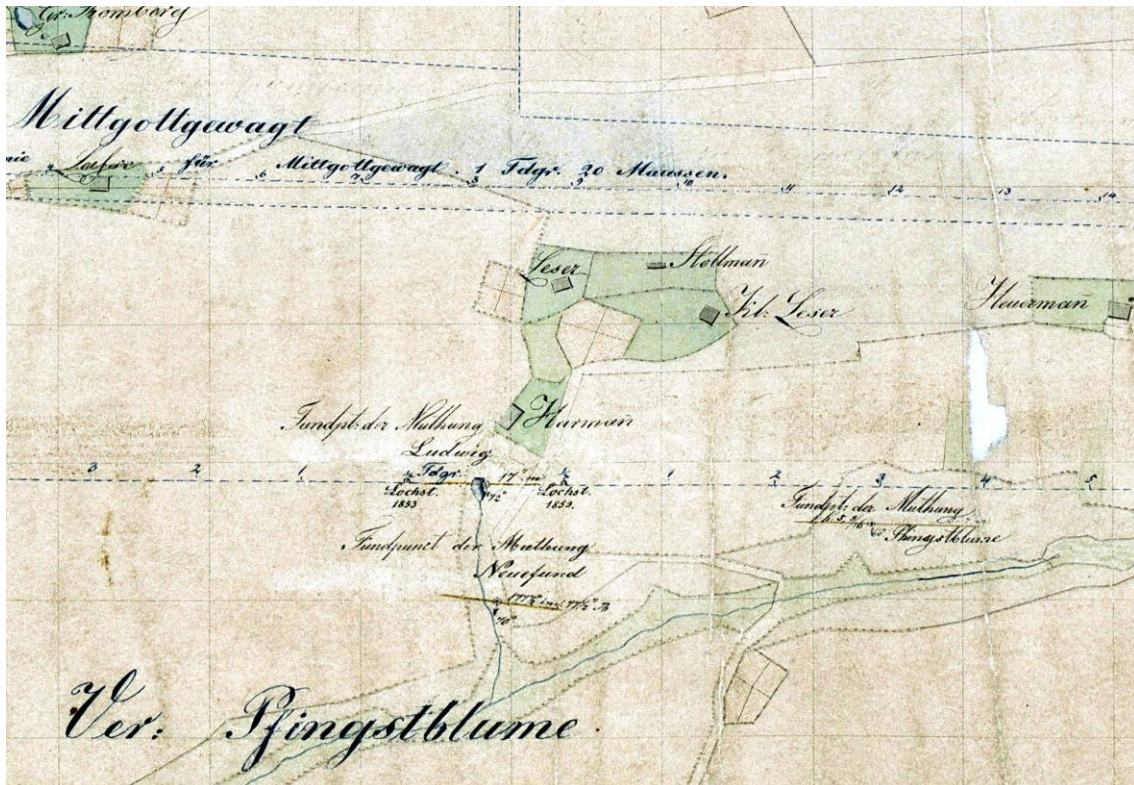 Gr: Tromberg
Mittgottgewagt
nie
für Mittgottgewagt. 1 Fdgr. 20 Maassen.
5 6 7 8 9 10 11 12 13 14
Leser
Stellman̄
Kl: Leser
Heuerman̄
Harman̄
Fundpt: der Muthung
Ludwig
3 2 1 ½ Fdgr. 17" m ½ 1 2 3 4 5
72°
Lochst.
1853
Lochst.
1853.
Fundpt: der Muthung
Pfingstblume
Fundpunct der Muthung
Neuefund
70°
Ver: Pfingstblume.